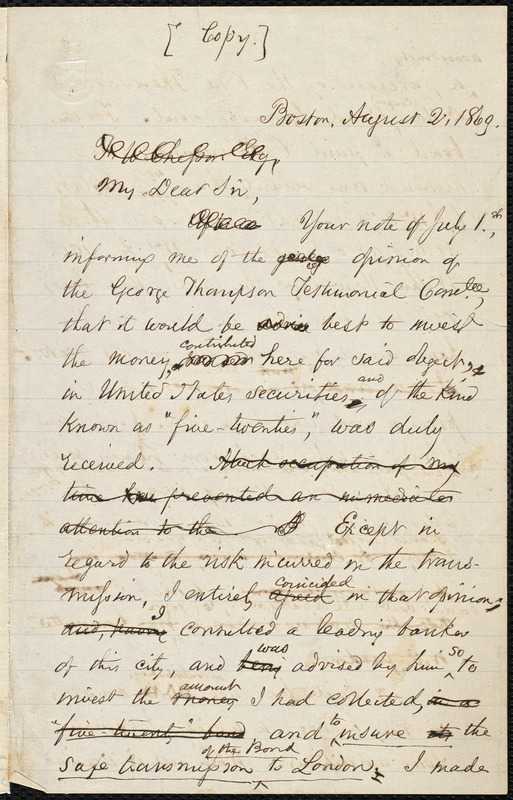 [Copy.]
Boston, August 2, 1869.
F. W. Chesson Esq,
My Dear Sir,
Office Your note of July 1st,
informing me of the opinion of
the George Thompson Testimonial Comtee,
that it would be advis best to invest
the money, contributed here for said object,
in United States securities, and of the kind
known as "five-twenties," was duly
received. Much occupation of my
time has prevented an immediate
attention to the Except in
regard to the risk incurred in the trans-
mission, I entirely agreed coincided in that opinion;
and, having I consulted a leading banker
of this city, and being was advised by him so to
invest the money amount I had collected, in a
"five-twenty" bond and to insure its the
safe transmission of the Bond to London. I made